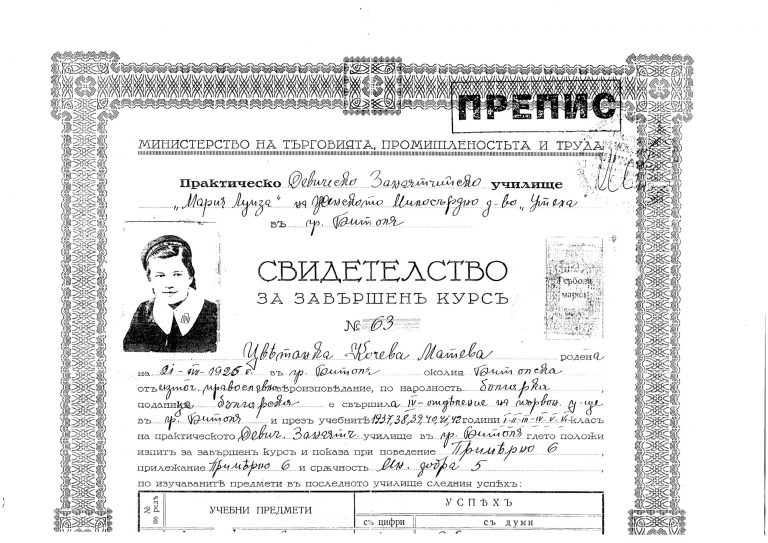 ПРЕПИС
МИНИСТЕРСТВО НА ТЪРГОВИЯТА, ПРОМИШЛЕНОСТЬТА И ТРУДА
Практическо Девическо Занаятчийско училище
„Мария Луиза" на Женското Милосърдно д-во „Утеха"
въ гр. Битоля
СВИДЕТЕЛСТВО
ЗА ЗАВЪРШЕНЪ КУРСЪ
Гербова
марка
№ 63
Цвѣтанка Кочева Матева родена
на 1925 г. въ гр. Битоля околия Битолска
отъ източ. православно вѣроизповѣдание, по народность българка
поданица българска е свършила IV-отдѣление на първон. у-ще
въ гр. Битоля и презъ учебнитѣ 1937,38,39,40,41,42 години I-II-III-IV-V-VI класъ
на практическото Девич. Занаятч. училище въ гр. Битоля гдето положи
изпитъ за завършенъ курсъ и показа при поведение Примѣрно 6
прилежание Примѣрно 6 и сржчность Мн. добра 5
по изучаванитѣ предмети въ последното училище следния успѣхъ:
№ по редъ
УЧЕБНИ ПРЕДМЕТИ
УСПѢХЪ
съ цифри
съ думи